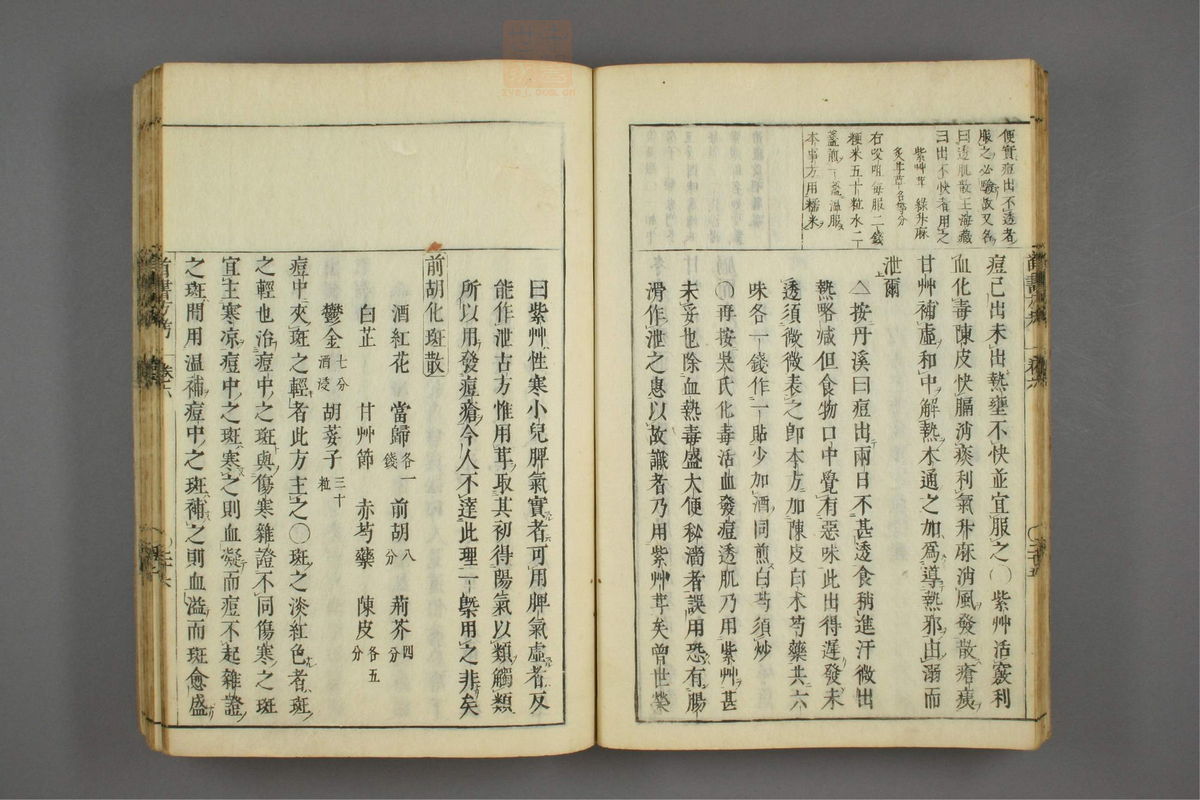 便實痘出不透者
服之必驗故又名
曰透肌散王海藏
曰出不快者用之
紫艸茸 綠升麻
炙甘草各等分
右㕮咀每服二錢
粳米五十粒水二
盞煎一盞溫服
本事方用糯米
痘已出未出熱壅不快並宜服之〇紫艸活竅利
血化毒陳皮快膈消痰利氣升麻消風發散瘡痍
甘艸補虛和中解熱木通之加爲導熱邪由溺而
泄爾
△按丹溪曰痘出兩日不甚透食稍進汗微出
熱略减但食物口中覺有惡味此出得遲發未
透須微微表之卽本方加陳皮白朮芍藥共六
味各一錢作一貼少加酒同煎白芍須炒
〇再按吳氏化毒活血發痘透肌乃用紫艸甚
未妥也除血熱毒盛大便秘濇者誤用恐有腸
滑作泄之患以故識者乃用紫艸茸矣曾世榮
曰紫艸性寒小兒脾氣實者可用脾氣虛者反
能作泄古方惟用茸取其初得陽氣以類觸類
所以用發痘瘡今人不達此理一槩用之非矣
前胡化斑散
酒紅花 當歸各一錢 前胡八分 荊芥四分
白芷 甘艸節 赤芍藥 陳皮各五分
鬱金七分酒浸 胡荽子三十粒
痘中夾斑之輕者此方主之〇斑之淡紅色者斑
之輕也治痘中之斑與傷寒雜證不同傷寒之斑
宜主寒凉痘中之斑寒之則血凝而痘不起雜證
之斑間用溫補痘中之斑補之則血溢而斑愈盛